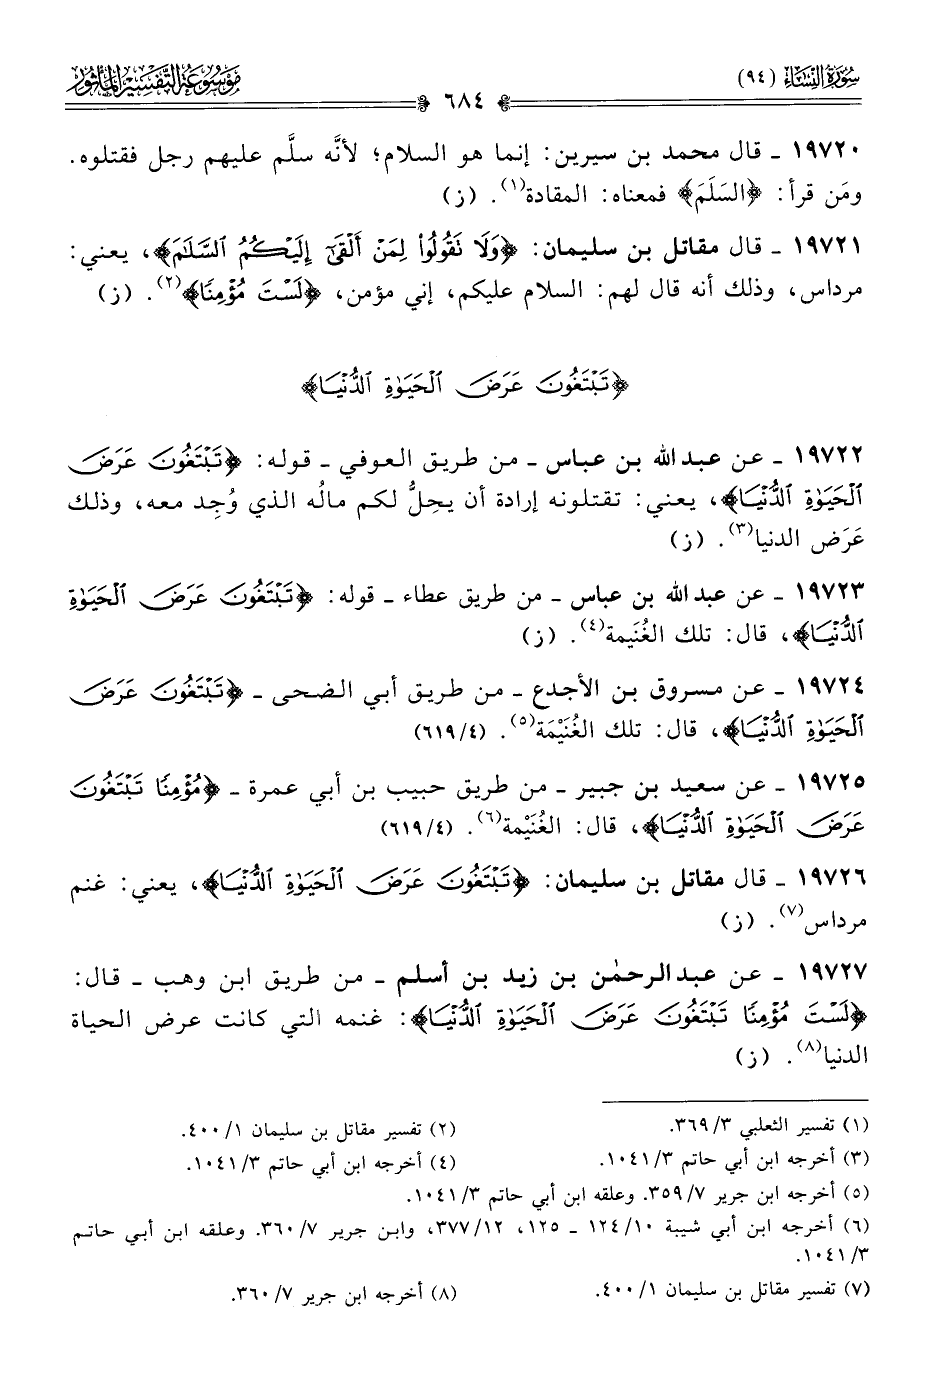 سُورَةُ النِّسَاءِ (٩٤)
٦٨٤
مَوْسُوعَةُ التَّفْسِيرِ المَأْثُورِ
١٩٧٢٠ ـ قال محمد بن سيرين: إنما هو السلام؛ لأنَّه سلَّم عليهم رجل فقتلوه.
ومَن قرأ: ﴿السَلَمَ﴾ فمعناه: المقادة(١). (ز)
١٩٧٢١ ـ قال مقاتل بن سليمان: ﴿وَلَا نَقُولُوا۟ لِمَنْ أَلْقَىٰٓ إِلَيْكُمُ ٱلسَّلَٰمَ﴾، يعني:
مرداس، وذلك أنه قال لهم: السلام عليكم، إني مؤمن، ﴿لَسْتَ مُؤْمِنًا﴾(٢). (ز)
﴿تَبْتَغُونَ عَرَضَ ٱلْحَيَوٰةِ ٱلدُّنْيَا﴾
١٩٧٢٢ ـ عن عبد الله بن عباس ـ من طريق العوفي ـ قوله: ﴿تَبْتَغُونَ عَرَضَ
ٱلْحَيَوٰةِ ٱلدُّنْيَا﴾، يعني: تقتلونه إرادة أن يحِلُّ لكم مالُه الذي وُجِد معه، وذلك
عَرَض الدنيا(٣). (ز)
١٩٧٢٣ ـ عن عبد الله بن عباس ـ من طريق عطاء ـ قوله: ﴿تَبْتَغُونَ عَرَضَ ٱلْحَيَوٰةِ
ٱلدُّنْيَا﴾، قال: تلك الغُنَيمة(٤). (ز)
١٩٧٢٤ ـ عن مسروق بن الأجدع ـ من طريق أبي الضحى ـ ﴿تَبْتَغُونَ عَرَضَ
ٱلْحَيَوٰةِ ٱلدُّنْيَا﴾، قال: تلك الغُنَيْمَة(٥). (٦١٩/٤)
١٩٧٢٥ ـ عن سعيد بن جبير ـ من طريق حبيب بن أبي عمرة ـ ﴿مُؤْمِنًا تَبْتَغُونَ
عَرَضَ ٱلْحَيَوٰةِ ٱلدُّنْيَا﴾، قال: الغُنَيْمة(٦). (٦١٩/٤)
١٩٧٢٦ ـ قال مقاتل بن سليمان: ﴿تَبْتَغُونَ عَرَضَ ٱلْحَيَوٰةِ ٱلدُّنْيَا﴾، يعني: غنم
مرداس(٧). (ز)
١٩٧٢٧ ـ عن عبد الرحمٰن بن زيد بن أسلم ـ من طريق ابن وهب ـ قال:
﴿لَسْتَ مُؤْمِنًا تَبْتَغُونَ عَرَضَ ٱلْحَيَوٰةِ ٱلدُّنْيَا﴾: غنمه التي كانت عرض الحياة
الدنيا(٨). (ز)
(١) تفسير الثعلبي ٣٦٩/٣.
(٢) تفسير مقاتل بن سليمان ٤٠٠/١.
(٣) أخرجه ابن أبي حاتم ١٠٤١/٣.
(٤) أخرجه ابن أبي حاتم ١٠٤١/٣.
(٥) أخرجه ابن جرير ٣٥٩/٧. وعلقه ابن أبي حاتم ١٠٤١/٣.
(٦) أخرجه ابن أبي شيبة ١٢٤/١٠ ـ ١٢٥، ٣٧٧/١٢، وابن جرير ٣٦٠/٧. وعلقه ابن أبي حاتم
١٠٤١/٣.
(٧) تفسير مقاتل بن سليمان ٤٠٠/١.
(٨) أخرجه ابن جرير ٣٦٠/٧.